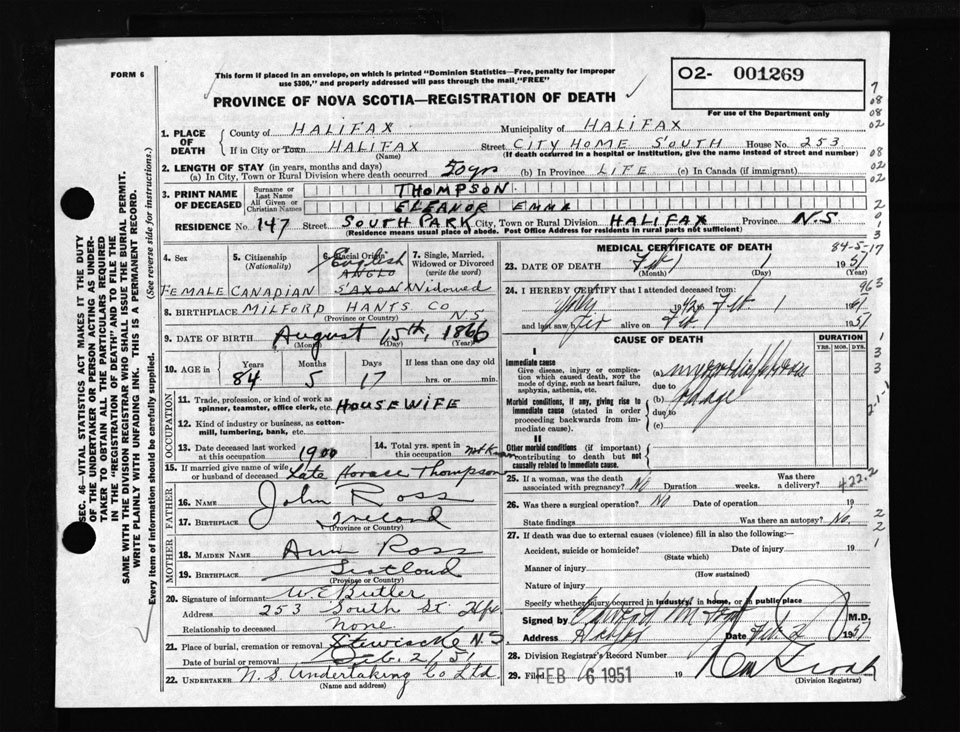 FORM 6
This form if placed in an envelope, on which is printed "Dominion Statistics—Free, penalty for improper
use $300," and properly addressed will pass through the mail "FREE"
PROVINCE OF NOVA SCOTIA—REGISTRATION OF DEATH
02- 001269
For use of the Department only
7
08
08
02
08
02
02
2
0
1
3
1. PLACE OF DEATH
County of HALIFAX Municipality of HALIFAX
If in City or Town HALIFAX Street CITY HOME SOUTH House No. 253
(Name) (If death occurred in a hospital or institution, give the name instead of street and number)
2. LENGTH OF STAY (in years, months and days)
(a) In City, Town or Rural Division where death occurred 50 yrs (b) In Province LIFE (c) In Canada (if immigrant)
3. PRINT NAME OF DECEASED
Surname or Last Name THOMPSON
All Given or Christian Names ELEANOR EMMA
RESIDENCE No. 147 Street SOUTH PARK City, Town or Rural Division HALIFAX Province N.S
(Residence means usual place of abode. Post Office Address for residents in rural parts not sufficient)
4. Sex
FEMALE
5. Citizenship
(Nationality)
CANADIAN
6. Racial Origin
English
ANGLO
SAXON
7. Single, Married,
Widowed or Divorced
(write the word)
Widowed
8. BIRTHPLACE MILFORD HANTS CO N.S
(Province or Country)
9. DATE OF BIRTH August 15th, 1866
(Month) (Day) (Year)
10. AGE in Years Months Days If less than one day old
84 5 17 hrs. or min.
OCCUPATION
11. Trade, profession, or kind of work as
spinner, teamster, office clerk, etc. HOUSEWIFE
12. Kind of industry or business, as cotton-
mill, lumbering, bank, etc.
13. Date deceased last worked
at this occupation 1900
14. Total yrs. spent in
this occupation not known
15. If married give name of wife
or husband of deceased Late Horace Thompson
FATHER
16. Name John Ross
17. Birthplace Ireland
(Province or Country)
MOTHER
18. MAIDEN NAME Ann Ross
19. Birthplace Scotland
(Province or Country)
20. Signature of informant W.E Butler
Address 253 South St Hfx
Relationship to deceased None
21. Place of burial, cremation or removal Stewiacke N.S
Date of burial or removal Feb. 2/51
22. UNDERTAKER N.S. Undertaking Co Ltd
(Name and address)
MEDICAL CERTIFICATE OF DEATH 84-5-17
23. DATE OF DEATH Feb 1 1951
(Month) (Day) (Year)
963
24. I HEREBY CERTIFY that I attended deceased from:
1942 to Feb. 1 1951
and last saw her alive on Feb 1 1951
CAUSE OF DEATH
DURATION
YRS. MOS. DYS.
I
Immediate cause
Give disease, injury or complica-
tion which caused death, NOT the
mode of dying, such as heart failure,
asphyxia, asthenia, etc.
(a)
due to
Morbid conditions, if any, giving rise to
immediate cause (stated in order
proceeding backwards from im-
mediate cause).
(b)
due to
(c)
II
Other morbid conditions (if important)
contributing to death but not
causally related to immediate cause.
1
3
3
2-1-
25. If a woman, was the death
associated with pregnancy? No Duration weeks. Was there
a delivery?
422.2
26. Was there a surgical operation? No Date of operation 19
State findings Was there an autopsy? No
2
2
1
27. If death was due to external causes (violence) fill in also the following:—
Accident, suicide or homicide? Date of injury 19
(State which)
Manner of injury
(How sustained)
Nature of injury
Specify whether injury occurred in industry, in home, or in public place
Signed by M.D.
Address Halifax Date Feb 2 1951
28. Division Registrar's Record Number
29. Filed FEB 6 1951 19
(Division Registrar)
SEC. 46—VITAL STATISTICS ACT MAKES IT THE DUTY
OF THE UNDERTAKER OR PERSON ACTING AS UNDER-
TAKER TO OBTAIN ALL THE PARTICULARS REQUIRED
IN THE "REGISTRATION OF DEATH" AND TO FILE THE
SAME WITH THE DIVISION REGISTRAR WHO SHALL ISSUE THE BURIAL PERMIT.
WRITE PLAINLY WITH UNFADING INK. THIS IS A PERMANENT RECORD.
Every item of information should be carefully supplied. (See reverse side for instructions.)